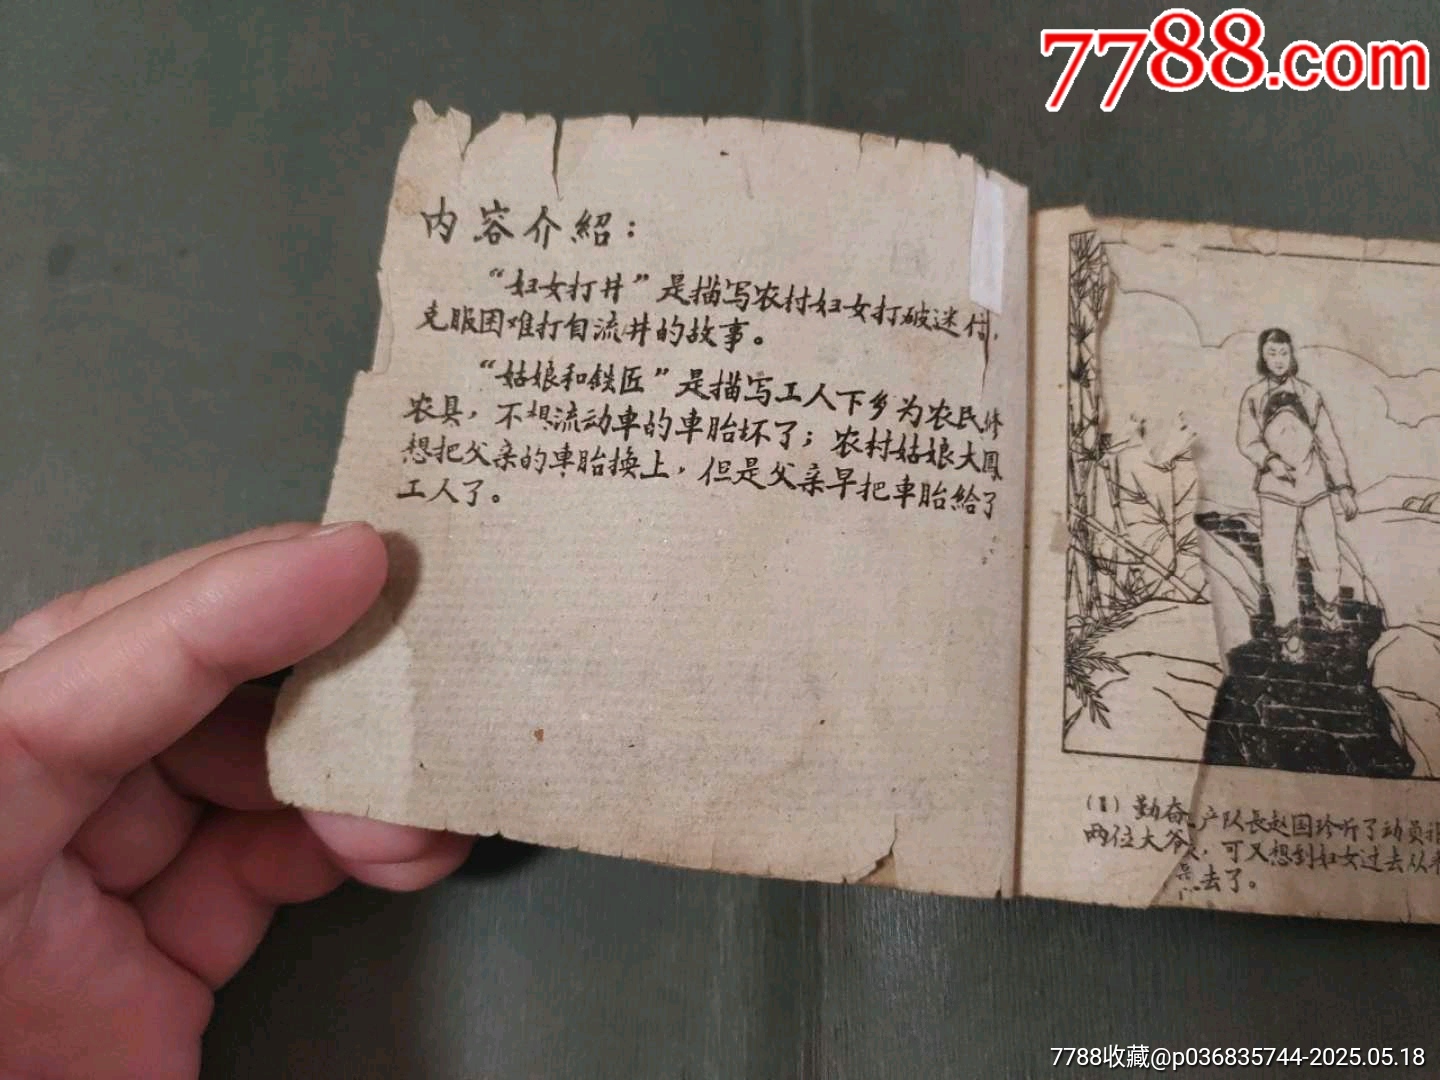 7788.com
内容介紹：
“妇女打井”是描写农村妇女打破迷信，
克服困难打自流井的故事。
“姑娘和铁匠”是描写工人下乡为农民修
农具，不想流动車的車胎坏了；农村姑娘大鳳
想把父亲的車胎換上，但是父亲早把車胎給了
工人了。
(1) 勤奋 户队长赵国珍听了动員
两位大爷，可又想到妇女过去从
去了。
7788收藏@p036835744-2025.05.18